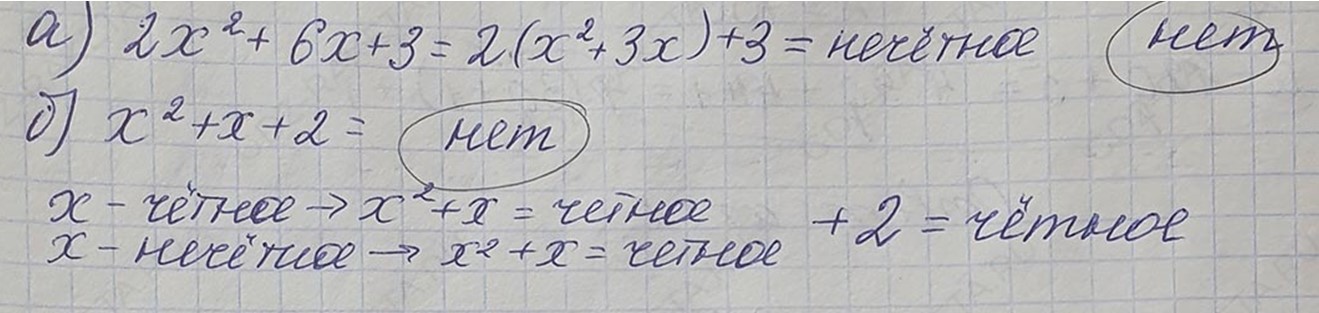 а) 2x² + 6x + 3 = 2(x² + 3x) + 3 = нечётное нет
б) x² + x + 2 = нет
x - чётное → x² + x = четное + 2 = чётное
x - нечётное → x² + x = четное